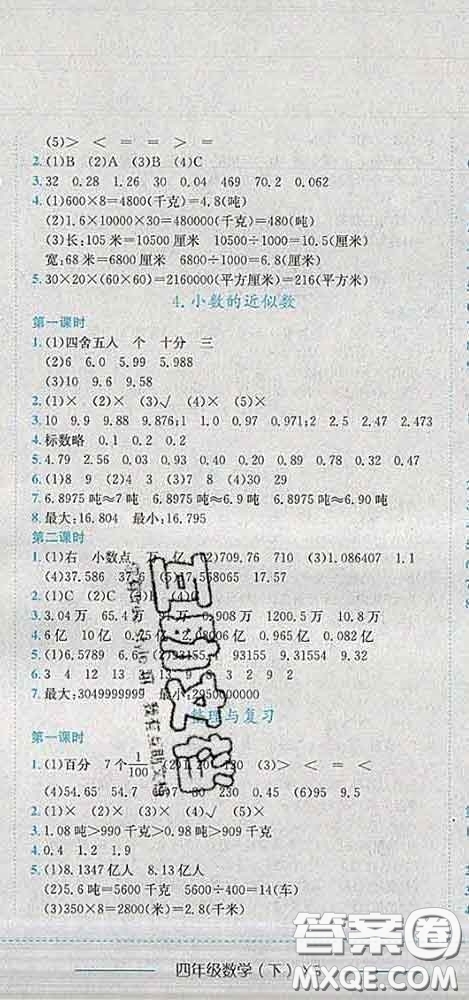 (5)> < = = > =
2.(1)B (2)A (3)B (4)C
3. 32 0.28 1.26 30 0.04 469 70.2 0.062
4.(1)600×8=4800(千克)=4.8(吨)
(2)1.6×10000×30=480000(千克)=480(吨)
(3)长:105米=10500厘米 10500÷1000=10.5(厘米)
宽:68米=6800厘米 6800÷1000=6.8(厘米)
5. 30×20×(60×60)=2160000(平方厘米)=216(平方米)
4.小数的近似数
第一课时
1.(1)四舍五入 个 十分 三
(2)6 6.0 5.99 5.988
(3)10 9.6 9.58
2.(1)× (2)× (3)√ (4)×
3. 10 9.9 9.88 9.876;1 1.0 0.97 0.971;2 2.5 2.47 2.473
4.标数略 0.1 0.2 0.2
5. 4.79 2.56 0.03 0.93 0.40 0.20 0.65 0.47 0.83
6.(1)8 9 (2)4 3 (3)7 8 (4)30 29
7. 6.8975吨≈7吨 6.8975吨≈6.9吨 6.8975吨≈6.90吨
8.最大:16.804 最小:16.795
第二课时
1.(1)右 小数点 万 亿 (2)709.76 710 (3)1.086407 1.1
(4)37.586 37.6 (5)17.568057 17.57
2.(1)C (2)C (3)B
3. 3.04万 0.908万 1200.5万 10.8万
4. 6亿 10亿 0.96亿 0.082亿
5.(1)6.5789 6.6 93155 9
6. 3 4 12 13 9
7.最大:3049999999 最小:2950000000
整理与复习
第一课时
1.(1)百分 7个1/100 130 (3)> < = = <
(4)54.65 54.7 80 230 0.45 (5)95
2.(1)× (2)× (3)√ (4)×
3. 1.08吨>990千克>
4. 0.4 1.2 1.9
5.(1)8.1347亿人 8.13亿人
(2)5.6吨=5600千克 5600÷400=14(车)
(3)350×8=2800(米)=2.8(千米)
四年级数学(下)
答案圈
MXQE.COM